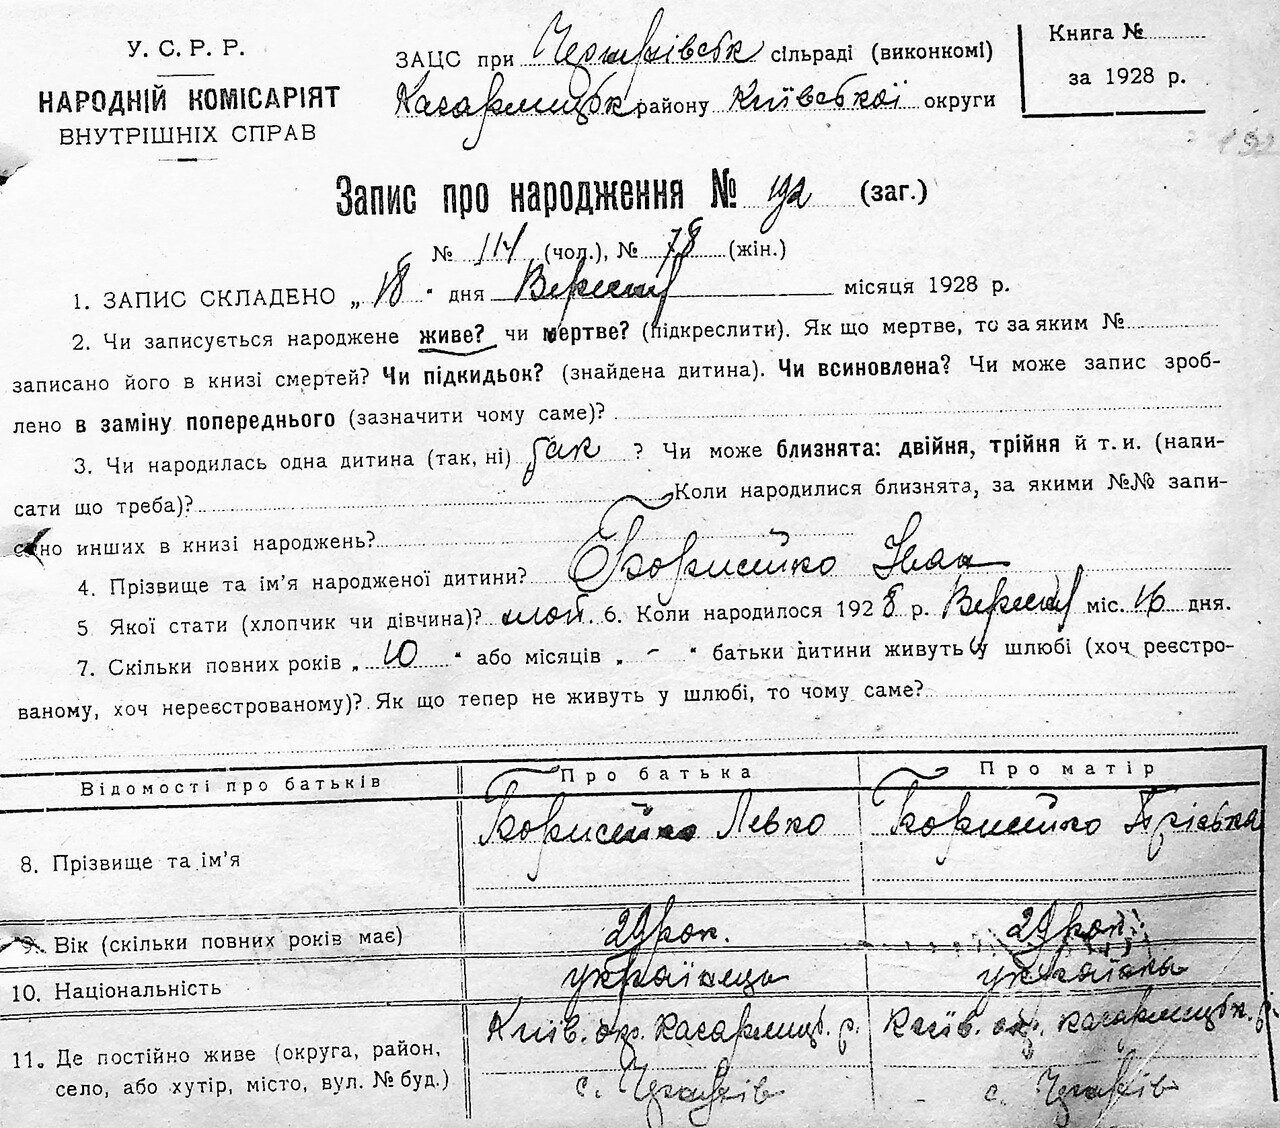 У. С. Р. Р.
НАРОДНІЙ КОМІСАРІЯТ
ВНУТРІШНІХ СПРАВ
ЗАЦС при сільраді (виконкомі)
Кагарлицьк району Київської округи
Книга №
за 1928 р.
192
Запис про народження № 192 (заг.)
№ 114 (чол.), № 78 (жін.)
1. ЗАПИС СКЛАДЕНО „ 18 " дня Вересня місяця 1928 р.
2. Чи записується народжене живе? чи мертве? (підкреслити). Як що мертве, то за яким №
записано його в книзі смертей? Чи підкидьок? (знайдена дитина). Чи всиновлена? Чи може запис зроб-
лено в заміну попереднього (зазначити чому саме)?
3. Чи народилась одна дитина (так, ні) так ? Чи може близнята: двійня, трійня й т. и. (напи-
сати що треба)? Коли народилися близнята, за якими №№ запи-
сано инших в книзі народжень?
4. Прізвище та ім'я народженої дитини? Борисейко Іван
5 Якої стати (хлопчик чи дівчина)? хлоп. 6. Коли народилося 1928 р. Вересня міс. 16 дня.
7. Скільки повних років „ 10 " або місяців „ - " батьки дитини живуть у шлюбі (хоч реєстро-
ваному, хоч нереєстрованому)? Як що тепер не живуть у шлюбі, то чому саме?
Відомості про батьків Про батька Про матір
8. Прізвище та ім'я Борисейко Левко Борисейко Пріська
9. Вік (скільки повних років має) 29 рок. 29 рок.
10. Національність українець українка
11. Де постійно живе (округа, район, Київ. окр. Кагарлицьк. р. Київ. окр. Кагарлицьк. р.
село, або хутір, місто, вул. № буд.) с. с.